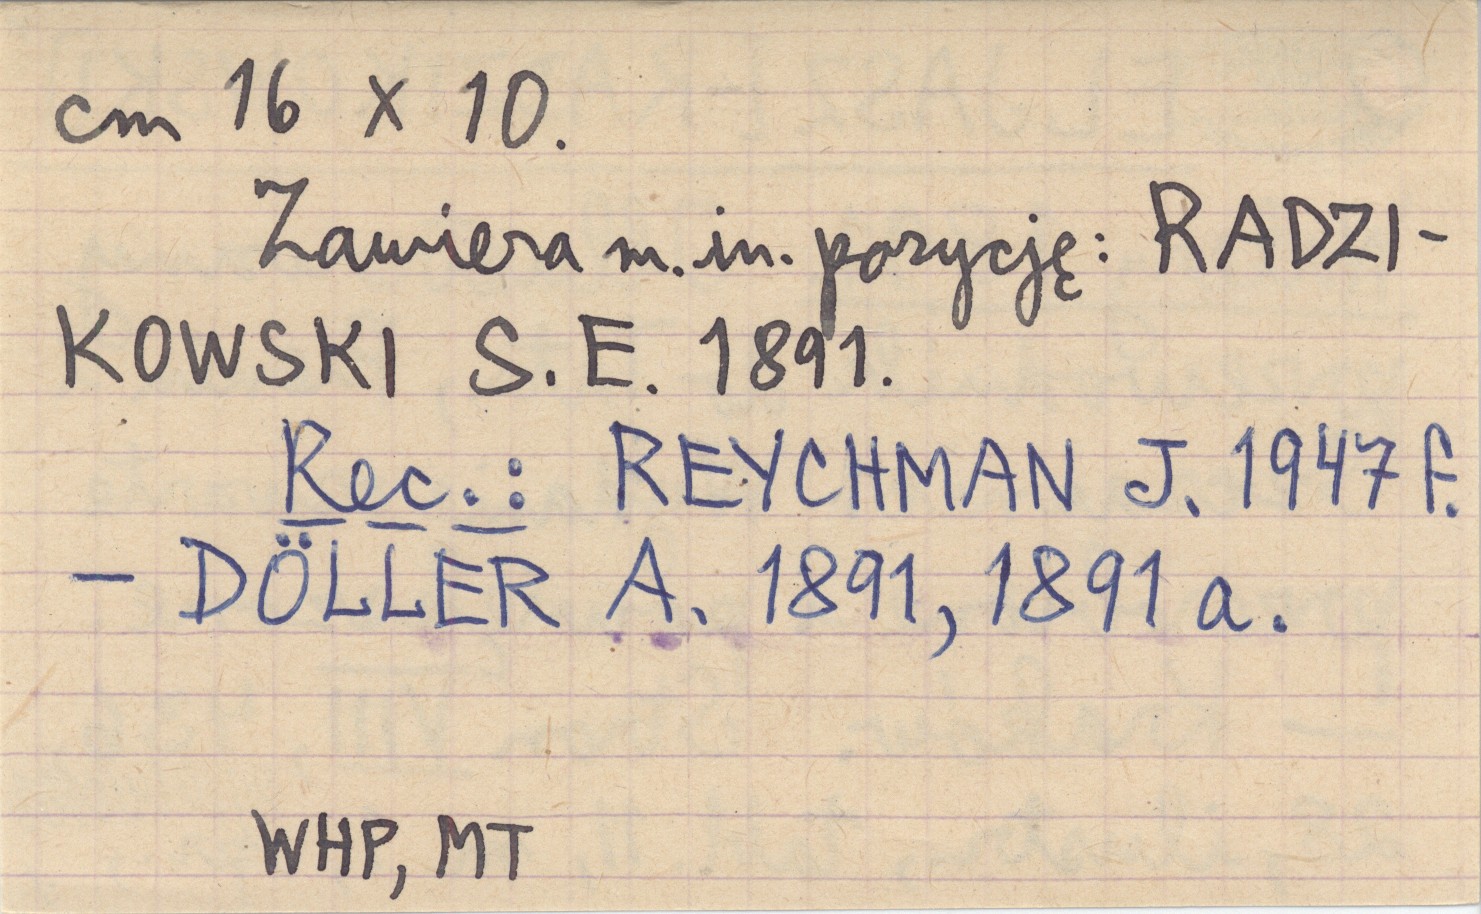 cm 16 x 10.
Zawiera m. in. pozycję: RADZI-
KOWSKI S. E. 1891.
Rec.: REYCHMAN J. 1947 f.
– DÖLLER A. 1891, 1891 a.
WHP, MT